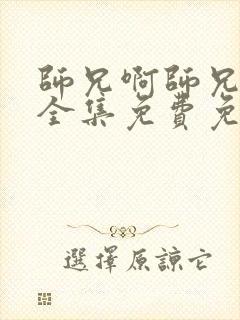 師兄啊師兄
全集免費免
選擇原諒它